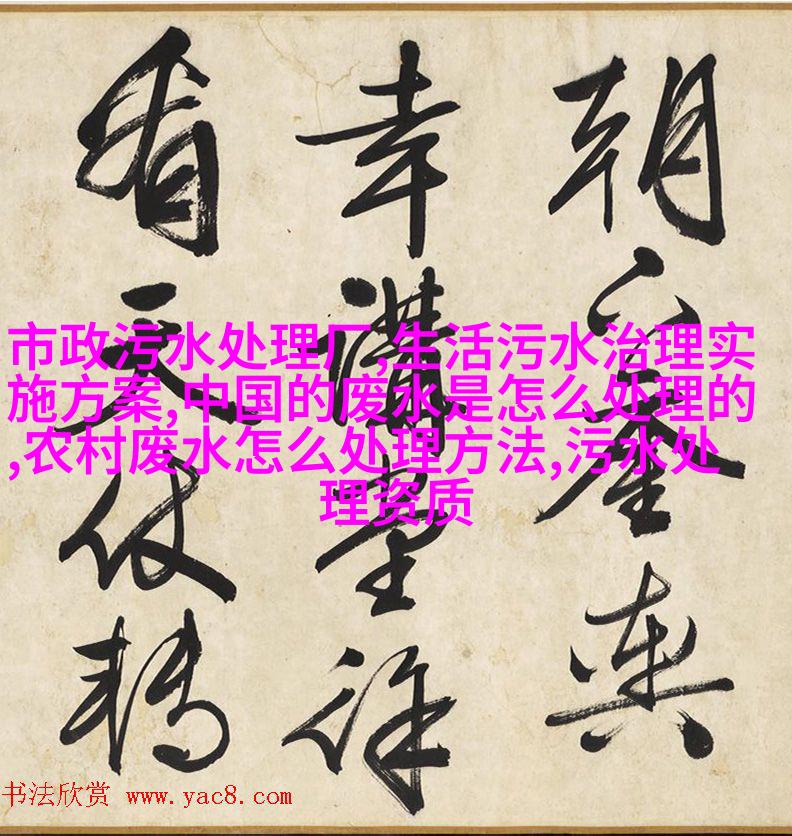 市政污水处理厂,生活污水治理实
施方案,中国的废水是怎么处理的
,农村废水怎么处理方法,污水处
理资质
朝
幸講臺徐
看天仗轉
书法欣赏 www.yac8.com